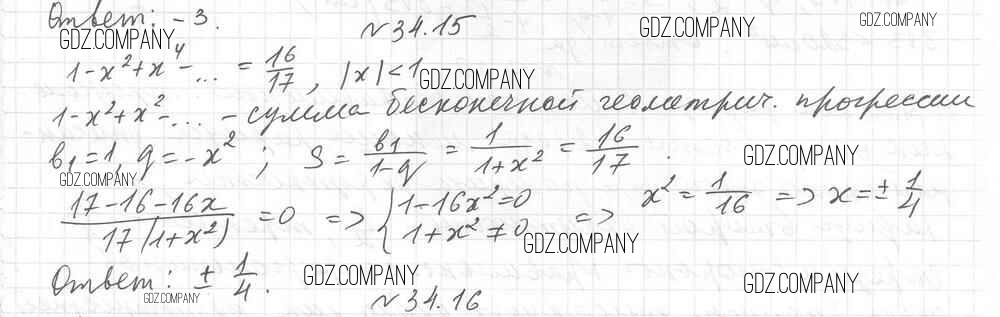 Ответ: -3.
№34.15
GDZ.COMPANY
GDZ.COMPANY
GDZ.COMPANY
1-x²+x⁴-... = 16/17, |x|<1
GDZ.COMPANY
1-x²+x²-... - сумма бесконечной геометрич. прогрессии
b₁=1, q=-x²; S = b₁/(1-q) = 1/(1+x²) = 16/17.
GDZ.COMPANY
GDZ.COMPANY
(17-16-16x)/(17(1+x²)) = 0 => { 1-16x²=0 1+x²≠0 => x² = 1/16 => x=± 1/4
GDZ.COMPANY
Ответ: ± 1/4.
GDZ.COMPANY
GDZ.COMPANY
GDZ.COMPANY
№34.16